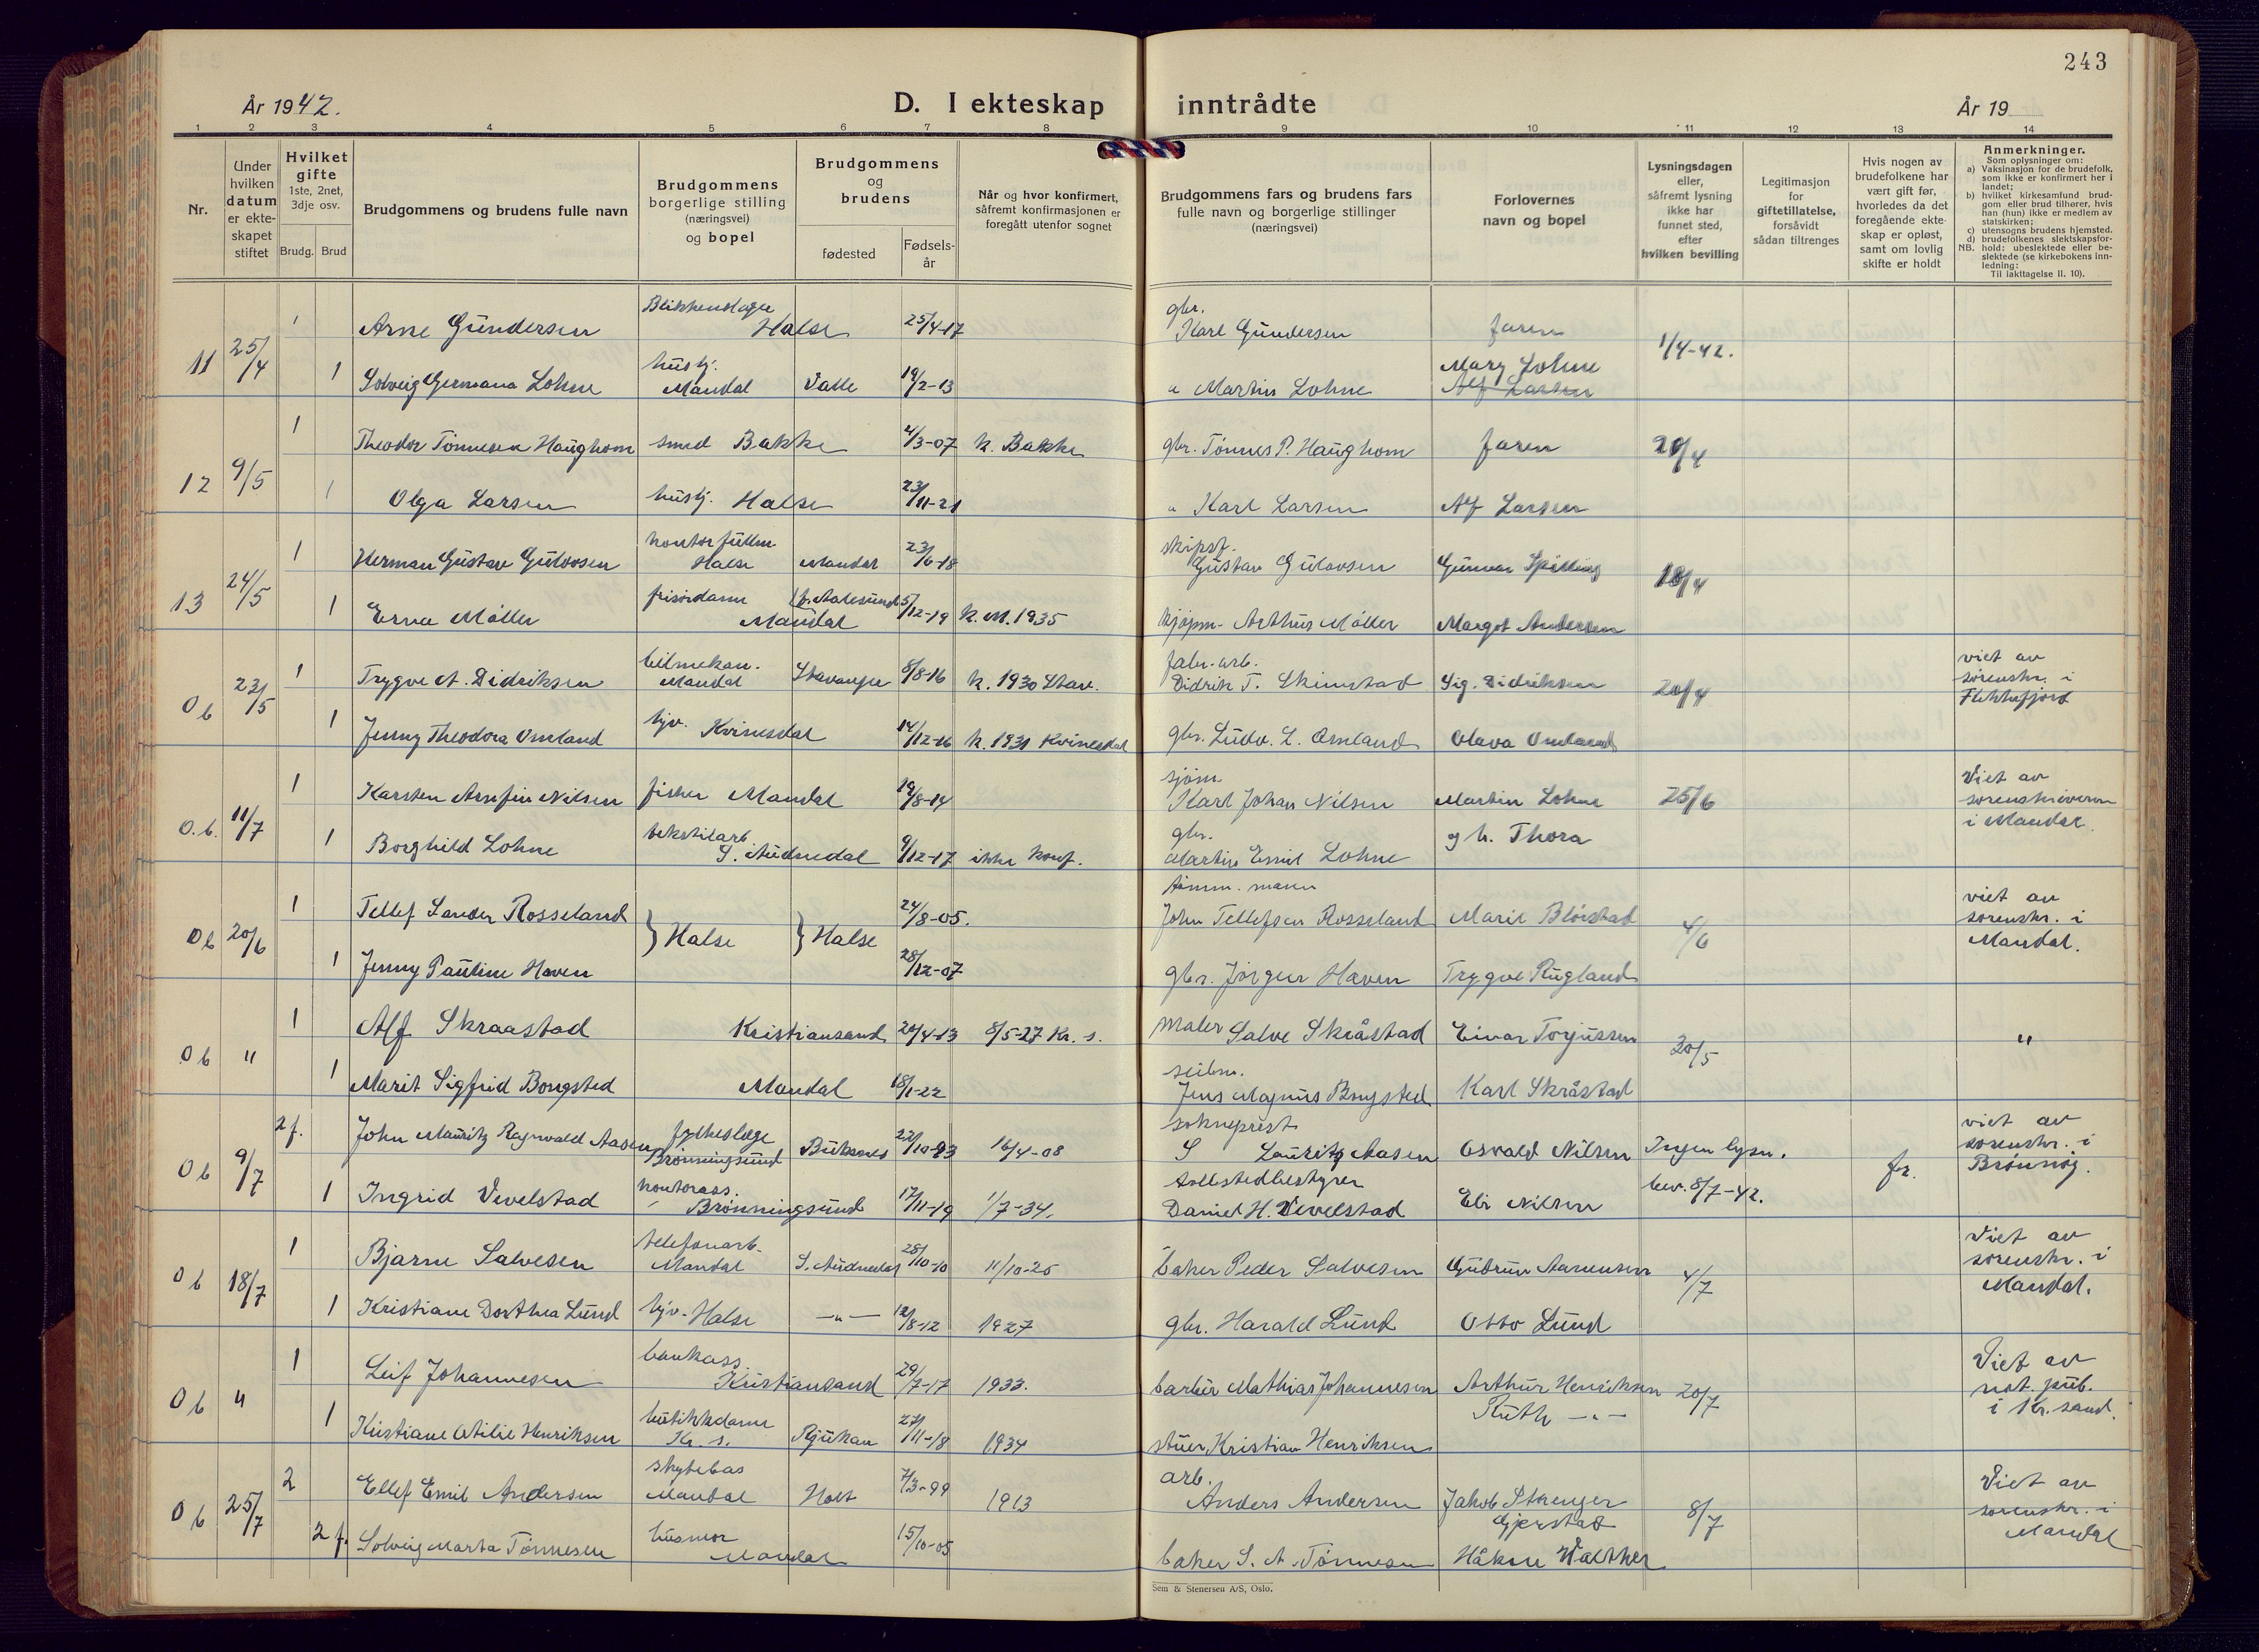 243
År 1942.
D. I ekteskap inntrådte
År 19
1 2 3 4 5 6 7 8 9 10 11 12 13 14
Nr.
Under hvilken datum er ekteskapet stiftet
Hvilket gifte 1ste, 2net, 3dje osv.
Brudg. Brud
Brudgommens og brudens fulle navn
Brudgommens borgerlige stilling (næringsvei) og bopel
Brudgommens og brudens
fødested
Fødselsår
Når og hvor konfirmert, såfremt konfirmasjonen er foregått utenfor sognet
Brudgommens fars og brudens fars fulle navn og borgerlige stillinger (næringsvei)
Forlovernes navn og bopel
Lysningsdagen eller, såfremt lysning ikke har funnet sted, efter hvilken bevilling
Legitimasjon for giftetillatelse, forsåvidt sådan tiltrenges
Hvis nogen av brudefolkene har vært gift før, hvorledes da det foregående ekteskap er opløst, samt om lovlig skifte er holdt
Anmerkninger.
Som oplysninger om:
a) Vaksinasjon for de brudefolk, som ikke er konfirmert her i landet;
b) hvilket kirkesamfund brudgom eller brud tilhører, hvis han (hun) ikke er medlem av statskirken;
c) utensogns brudens hjemsted.
d) brudefolkenes slektskapsforhold: ubeslektede eller beslektede (se kirkebokens innledning:
NB. Til iakttagelse II. 10).
11 25/4 1 Arne Gundersen Blikkenslager Halse 25/4-17 gbr. Karl Gundersen faren 1/4-42.
1 Solveig Germana Lohne husbj. Mandal Valle 19/2-13 " Martin Lohne Mary Lohne Alf Larsen
12 9/5 1 Theodor Tønnesen Haughom smed Bakke 4/3-07 k. Bakke gbr. Tønnes P. Haughom faren 20/4
1 Olga Larsen husbj. Halse 23/11-21 " Karl Larsen Alf Larsen
13 24/5 1 Herman Gustav Gulovsen kontorfullm. Halse Mandal 23/6-18 skipsf. Gustav Gulovsen Gunvor Spilling 18/4
1 Erna Møller frisørdame Mandal f. Aalesund 5/12-19 k. M. 1935 kjøpm. Arthur Møller Margot Andersen
Ob 23/5 1 Trygve A. Didriksen bilmekan. Mandal Stavanger 8/8-16 k. 1930 Stav. fabr.-arb. Didrik T. Skimstad Sig. Didriksen 20/4 viet av sorenskr. i Flekkefjord
1 Jenny Theodora Omland hjv. Kvinesdal 14/12-16 k. 1931 Kvinesdal gbr. Ludv. L. Omland Olava Omland
O.b. 11/7 1 Karsten Arnfin Nilsen fisker Mandal 19/8-14 sjøm. Karl Johan Nilsen Martin Lohne 25/6 Viet av sorenskriveren i Mandal.
1 Borghild Lohne tekstilarb. S. Audnedal 9/12-17 ikke konf. gbr. Martin Emil Lohne og h. Thora
Ob 20/6 1 Tellef Sander Rosseland } Halse } Halse 24/8-05. tømm. mann John Tellefsen Rosseland Marie Bløistad 4/6 viet av sorenskr. i Mandal.
1 Jenny Pauline Haven 28/12-07 gbr. Jørgen Haven Trygve Rugland
Ob " 1 Alf Skraastad Kristiansand 20/4-13 8/5-27 Kr. s. maler Salve Skråstad Einar Torjussen 20/5 "
1 Marit Sigfrid Bongsted Mandal 18/1-22 seilm. Jens Magnus Bongsted Karl Skråstad
Ob 9/7 2 f. John Mauritz Ragnvald Aasen fylkeslæge Brønningsund Buksnes 22/10-93 16/4-08 sokneprest S Lauritz Aasen Osvald Nilsen Ingen lysn. fr. viet av sorenskr. i Brønnøy.
1 Ingrid Vevelstad kontorass. Brønningsund 17/11-19 1/7-34. tollstedbestyrer Daniel H. Vevelstad Eli Nilsen bev. 8/7-42.
Ob 18/7 1 Bjarne Salvesen telefonarb. Mandal S. Audnedal 28/10-10 11/10-25 baker Peder Salvesen Gudrun Aanensen 4/7 Viet av sorenskr. i Mandal.
1 Kristiane Dorthea Lund hjv. Halse —"— 12/8-12 1927 gbr. Harald Lund Otto Lund
Ob " 1 Leif Johannesen bankass. Kristiansand 29/7-17 1933. barbér Mathias Johannesen Arthur Henriksen 20/7 Viet av not. pub. i Kr. sand.
1 Kristiane Otilie Henriksen butikkdame Kr. s. Rjukan 27/11-18 1934 stuer Kristian Henriksen Ruth —"—
Ob 25/7 2 Ellef Emil Andersen skytebas Mandal Holt 7/3-99 1913 arb. Anders Andersen Jakob Strenger Gjerstad 8/7 Viet av sorenskr. i Mandal
2 f. Solveig Marta Tønnesen husmor Mandal 15/10-05 baker S. A. Tønnesen Håkon Walther
Sem & Stenersen A/S, Oslo.